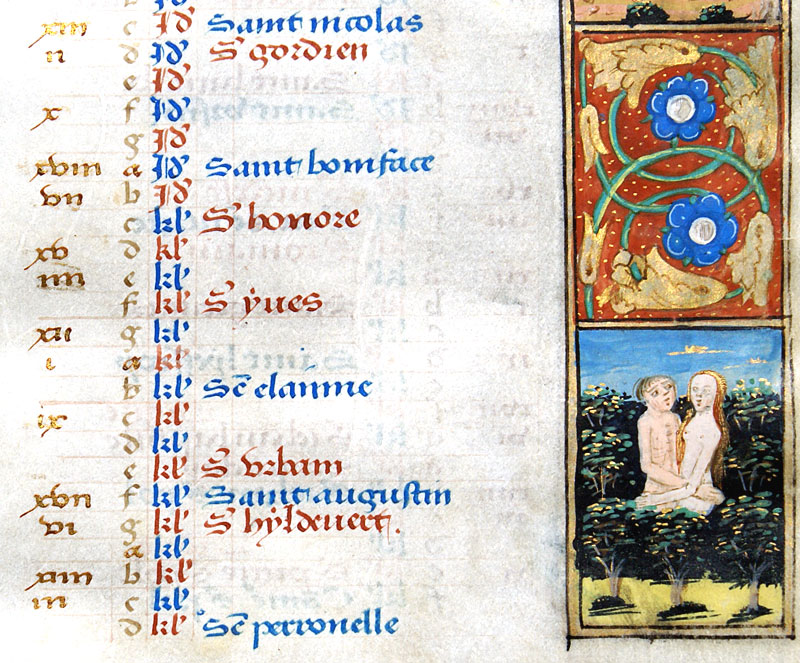 xiii c Id Saint nicolas
ii d Id S gordien
e Id
x f Id
g Id
xviii a Id Saint boniface
vii b Id
c kl S honore
xv d kl
iiii e kl
f kl S yues
xii g kl
i a kl
b kl Sē elainne
ix c kl
d kl
e kl S vrbain
xvii f kl Saint augustin
vi g kl S hyldeuert.
a kl
xiiii b kl
iii c kl
d kl Sē perronelle